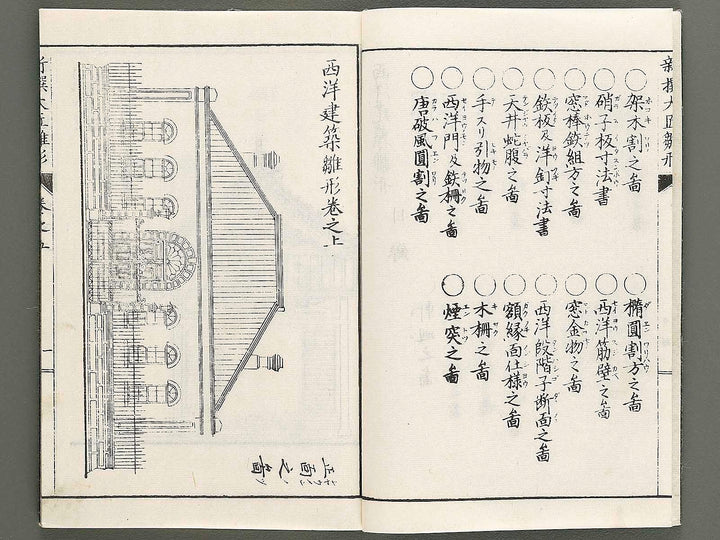 新撰大匠雛形
○架木割之啚
○硝子板寸法書
○窓棒鉄組方之啚
○鉄板及洋釘寸法書
○天井蛇腹之啚
○手スリ引物之啚
○西洋門及鉄柵之啚
○唐破風圓割之啚
○橢圓割方之啚
○西洋筋壁之啚
○窓金物之啚
○西洋段階子断面之啚
○額縁面仕様之啚
○木柵之啚
○煙突之啚
西洋建築雛形巻之上
正面之啚
新撰大匠雛形
巻之五
一